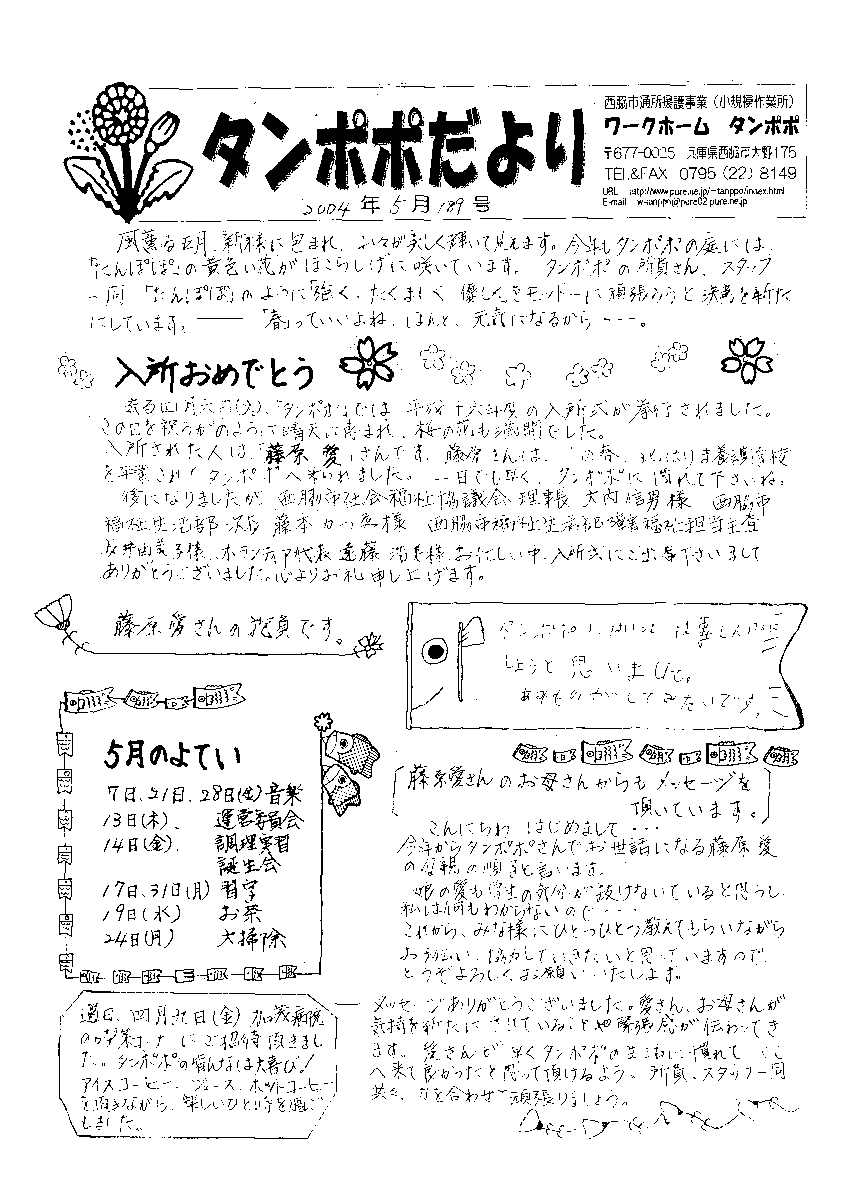 タンポポだより
2004年5月189号
西脇市通所援護事業(小規模作業所)
ワークホーム タンポポ
〒677-0035 兵庫県西脇市大野175
TEL&FAX 0795 (22) 8149
URL http://www.pure.ne.jp/~tanppo/index.html
E-mail w-tanppo@pure02.pure.ne.jp
風薫る五月、新緑に包まれ、木々が美しく輝いて見えます。今年もタンポポの庭には、
「たんぽぽ」の黄色い花がほこらしげに咲いています。 タンポポの所員さん、スタッフ
一同 「たんぽぽ」のように「強く、たくましく 優しく」をモットーに頑張ろうと決意を新た
にしています。―― 「春っていいよね、ほんと、元気になるから‥‥。
入所おめでとう
去る四月六日(火)、「タンポポ」では 平成十六年度の入所式が挙行されました。
この日を祝うかのように晴天に恵まれ、桜の花も満開でした。
入所された人は、「藤原 愛」さんです。藤原さんは、この春、北はりま養護学校
を卒業され「タンポポ」へ来られました。一日でも早く、タンポポに慣れて下さいね。
後になりましたが、西脇市社会福祉協議会 理事長 大内 様 西脇市
福祉生活部次長 藤本 様 西脇市福祉生活部 福祉担当主査
安井由美子様、ボランティア代表 遠藤 様、お忙しい中、入所式にご出席下さいまして
ありがとうございました。心よりお礼申し上げます。
藤原愛さんの写真です。
タンポポ
しようと思いました。
5月のよてい
7日、21日、28日(金)音楽
13日(木)、 運営委員会
14日(金)、 調理実習
誕生会
17日、31日(月) 習字
19日(水) お茶
24日(月) 大掃除
藤原愛さんのお母さんからもメッセージを
頂いています。
こんにちわ はじめまして・・・
今年からタンポポさんでお世話になる藤原愛
の母親の順子と言います。
娘の愛も学生の気分が抜けないでいると思うし
私は何もわからないので・・・
これから、みな様にひとつひとつ教えてもらいながら
お手伝い、協力していきたいと思っていますので
どうぞよろしくお願いいたします。
過日、四月三十日(金) 加茂病院
の にご招待頂きまし
た。タンポポの皆んなは大喜び!
アイスコーヒー、ジュース、ホットコーヒー
を頂きながら、楽しいひと時を過ご
しました。
メッセージありがとうございました。愛さん、お母さんが
気持を新たにされていることや緊張感が伝わってき
ます。愛さんど 早くタンポポの生活に慣れて ここ
へ来て良かったと思って頂けるよう、所員、スタッフ一同
共に、力を合わせて頑張りましょう。